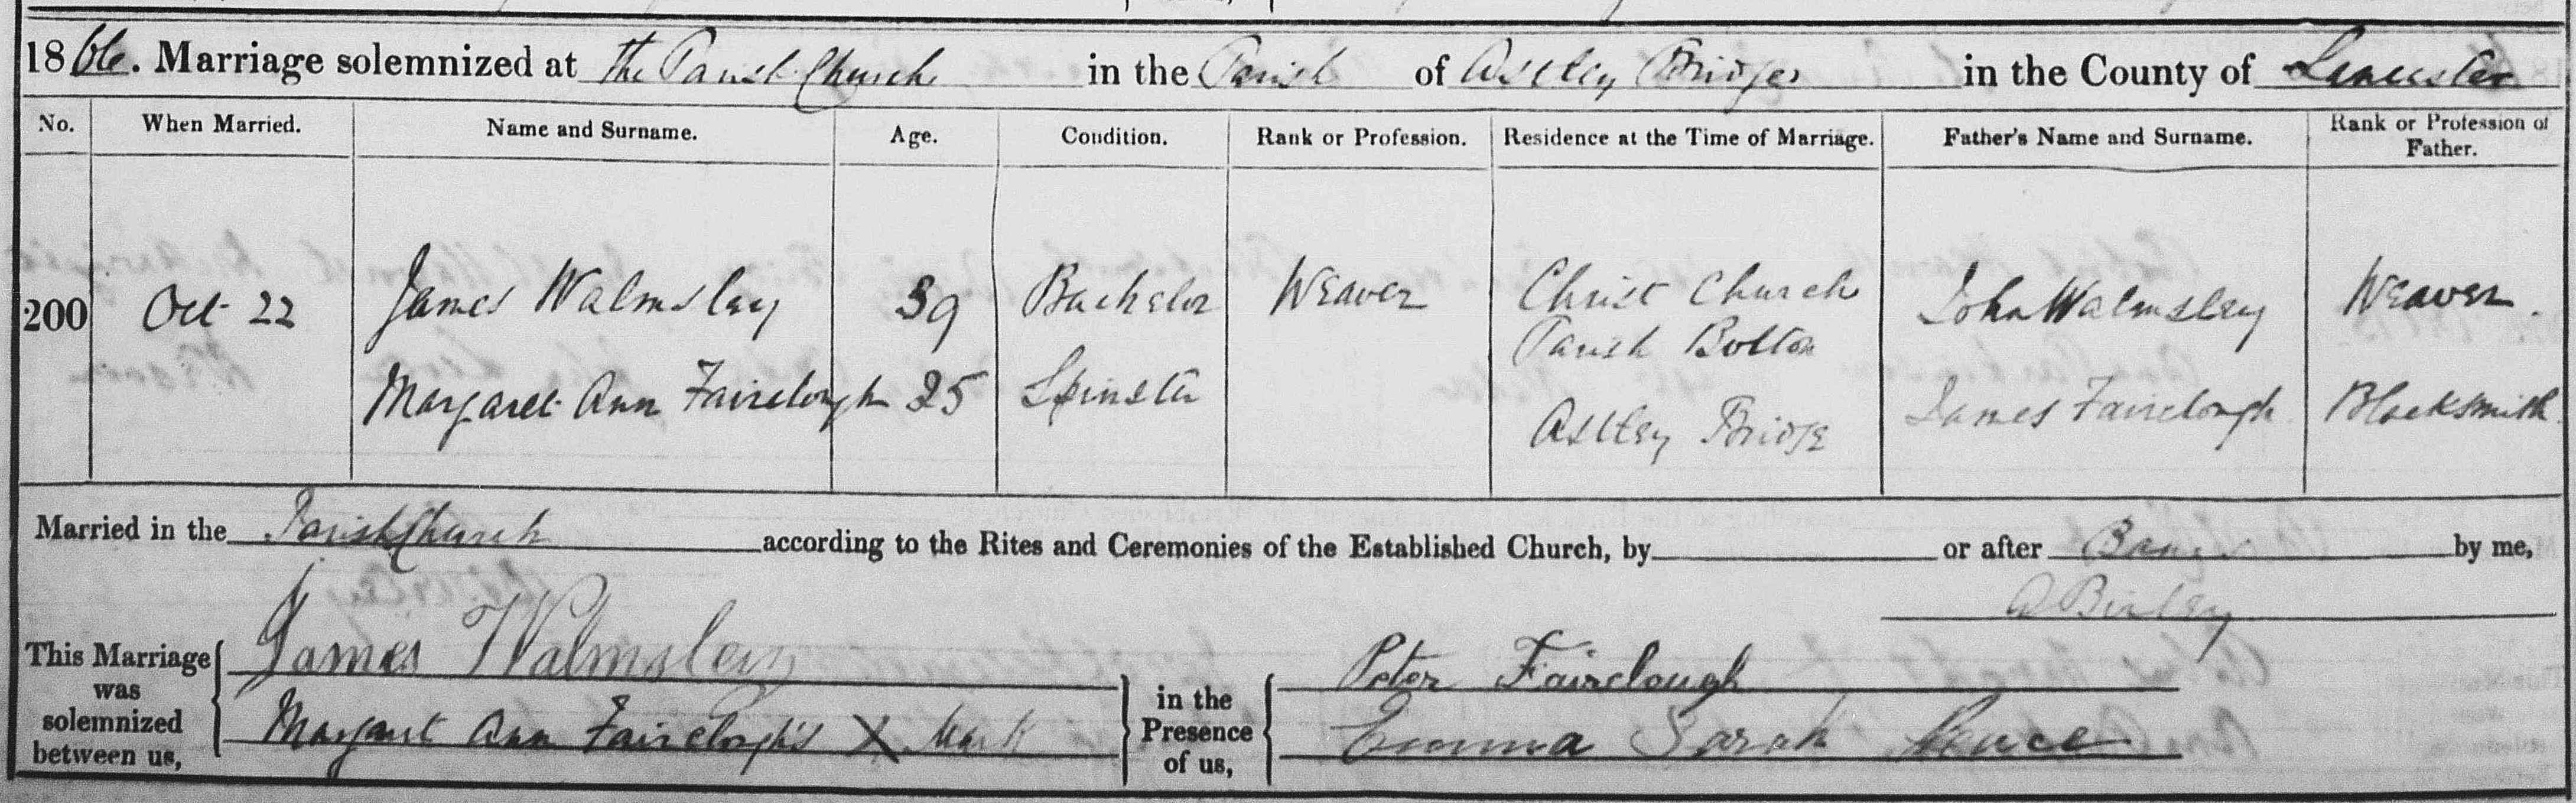 1866. Marriage solemnized at the Parish Church in the Parish of Astley Bridge in the County of Lancaster
No. When Married. Name and Surname. Age. Condition. Rank or Profession. Residence at the Time of Marriage. Father's Name and Surname. Rank or Profession of Father.
200 Oct 22 James Walmsley 39 Bachelor Weaver Christ Church Parish Bolton John Walmsley Weaver.
Margaret Ann Fairclough 25 Spinster Astley Bridge James Fairclough Blacksmith
Married in the Parish Church according to the Rites and Ceremonies of the Established Church, by or after Banns by me,
A Birley
This Marriage was solemnized between us, James Walmsley
Margaret Ann Fairclough's X Mark
in the Presence of us, Peter Fairclough
Emma Sarah